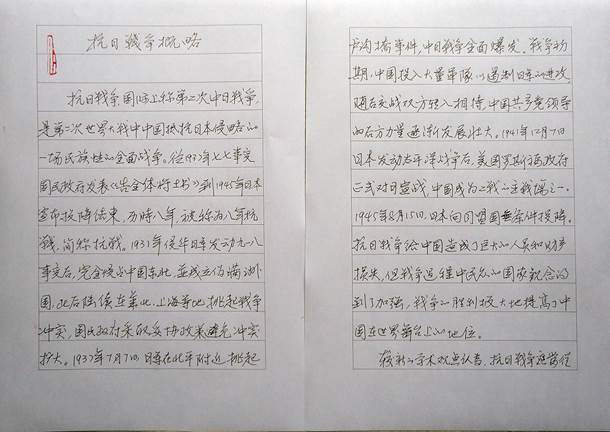 抗日战争概略
抗日战争国际上称第二次中日战争,
是第二次世界大战中中国抵抗日本侵略的
一场民族性的全面战争。从1937年七七事变
国民政府发表《告全体将士书》到1945年日本
宣布投降结束,历时八年,被称为八年抗
战,简称抗战。1931年侵华日军发动九一八
事变后,完全侵占中国东北,并成立伪满洲
国,此后陆续在华北、上海等地挑起战争
冲突,国民政府采取妥协政策避免冲突
扩大。1937年7月7日日军在北平附近挑起
卢沟桥事件,中日战争全面爆发。战争初
期,中国投入大量军队以遏制日军的进攻
随后交战双方转入相持,中国共产党领导
的后方力量逐渐发展壮大。1941年12月7日
日本发动太平洋战争后,美国罗斯福政府
正式对日宣战,中国成为二战的主战场之一。
1945年8月15日,日本向同盟国无条件投降。
抗日战争给中国造成了巨大的人员和财产
损失,但战争过程中民众的国家观念得
到了加强,战争的胜利极大地提高了中
国在世界舞台上的地位。
较新的学术观点认为,抗日战争应当从